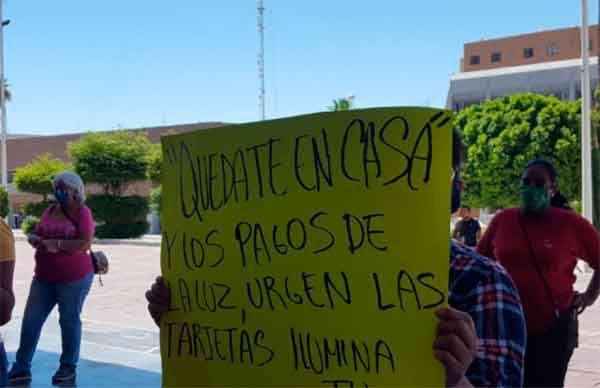 "QUEDATE EN CASA"
Y LOS PAGOS DE
LA LUZ, URGEN LAS
TARJETAS ILUMINA
TU